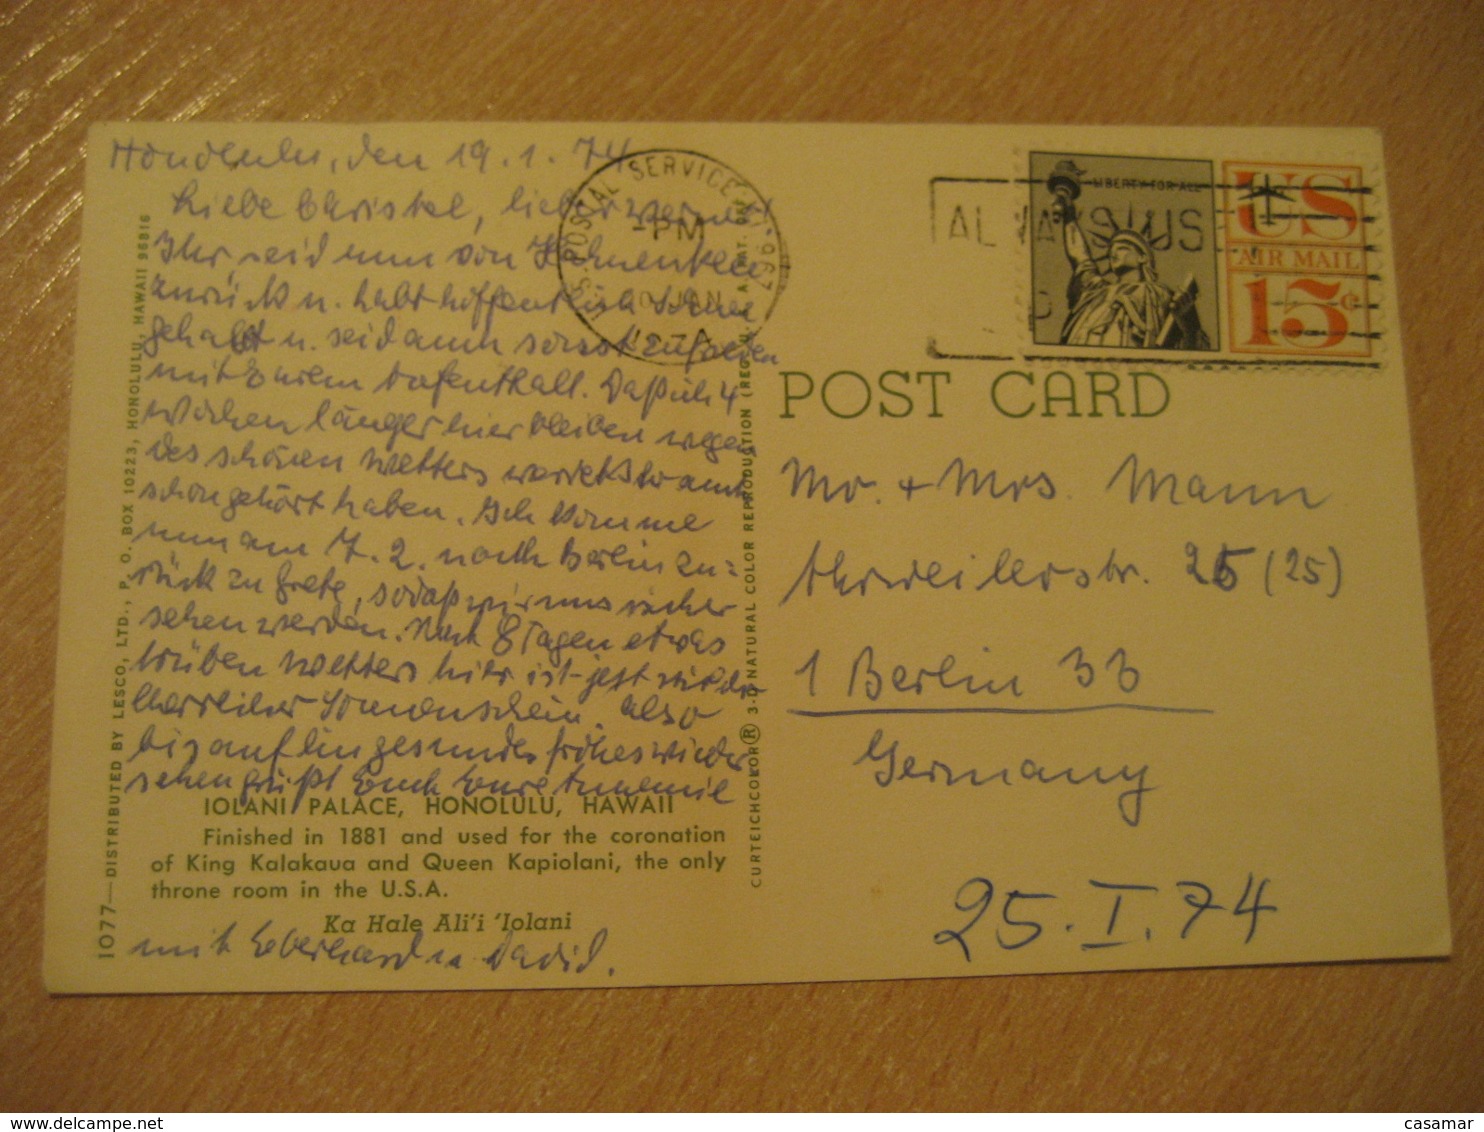 Honolulu, den 19.1.74
Liebe Christel, lieber Werner!
Ihr seid nun von
zurück u. habt hoffentlich Schnee
gehabt u. seid auch sonst zufrieden
mit Eurem Aufenthalt. Daß ich 4
Wochen länger hier bleiben wegen
des schönen Wetters werdet Ihr auch
schon gehört haben. Ich komme
nun am 7.2. nach Berlin zu=
rück zu Grete, sodaß wir uns sicher
sehen werden. Nach 8 Tagen etwas
trüben Wetters hier ist jetzt wieder
herrlicher Sonnenschein. Also
bis auf ein gesundes frohes Wieder
sehen grüßt Euch Eure Annemie
mit Eberhard u. David.
IOLANI PALACE, HONOLULU, HAWAII
Finished in 1881 and used for the coronation
of King Kalakaua and Queen Kapiolani, the only
throne room in the U.S.A.
Ka Hale Ali'i 'Iolani
1077—DISTRIBUTED BY LESCO, LTD., P. O. BOX 10223, HONOLULU, HAWAII 96816
CURTEICHCOLOR® 3-D NATURAL COLOR REPRODUCTION (REG. U.S.A. PAT. OFF.)
U.S. POSTAL SERVICE 967
PM
20 JAN
1974
ALWAYS USE
LIBERTY FOR ALL
US
AIR MAIL
15c
POST CARD
Mr. + Mrs. Mann
Ahrweilerstr. 25 (25)
1 Berlin 33
Germany
25.I.74
casamar